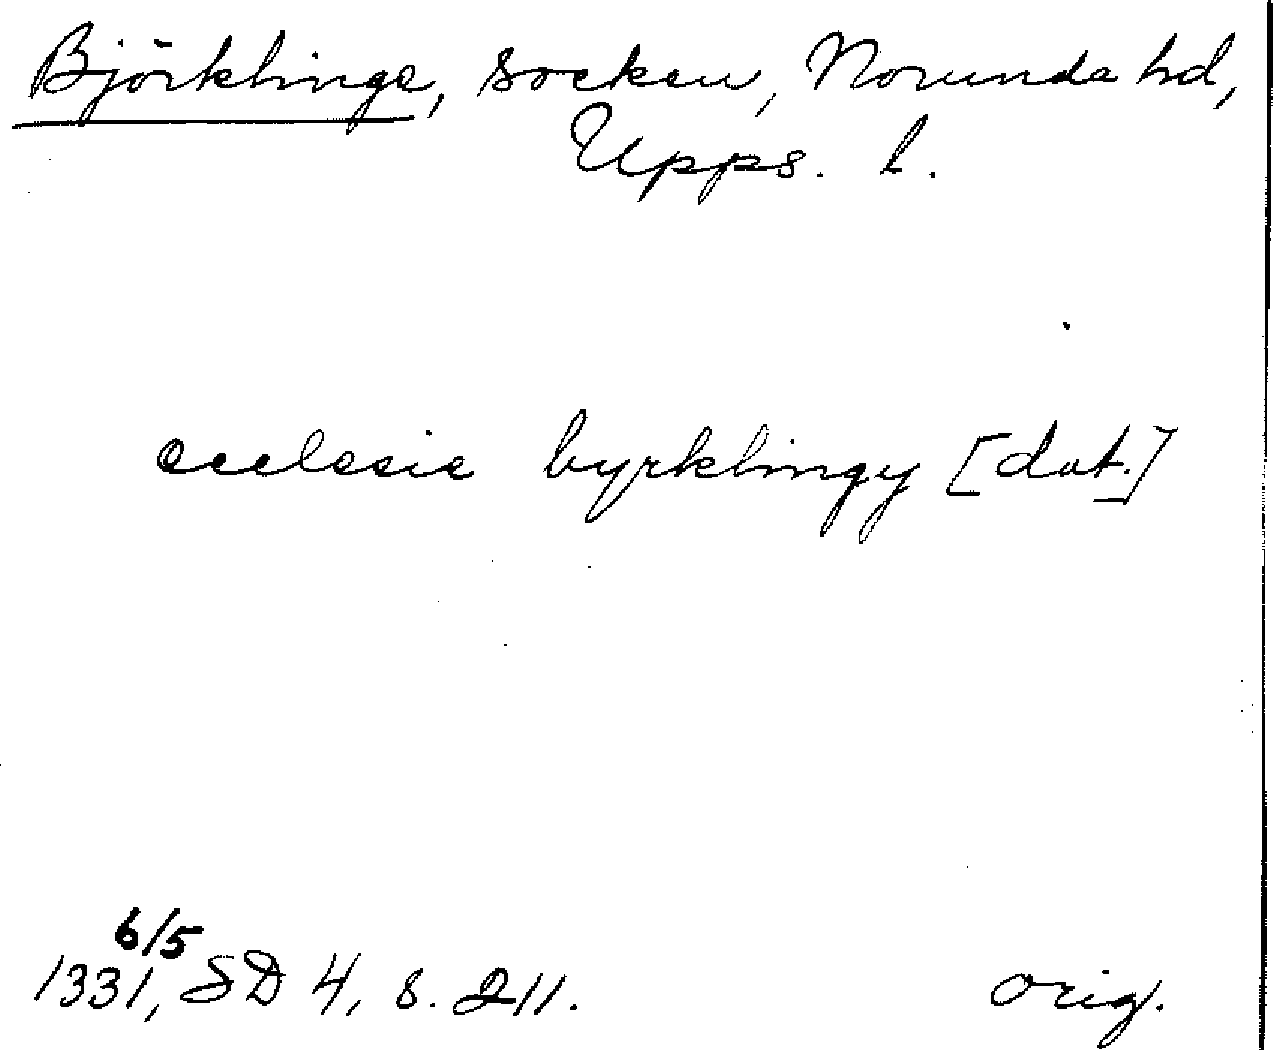 Björklinge, socken, Norunda hd,
Upps. l.
ecclesie byrklingy [dat.]
6/5
1331, SD 4, s. 211.
orig.